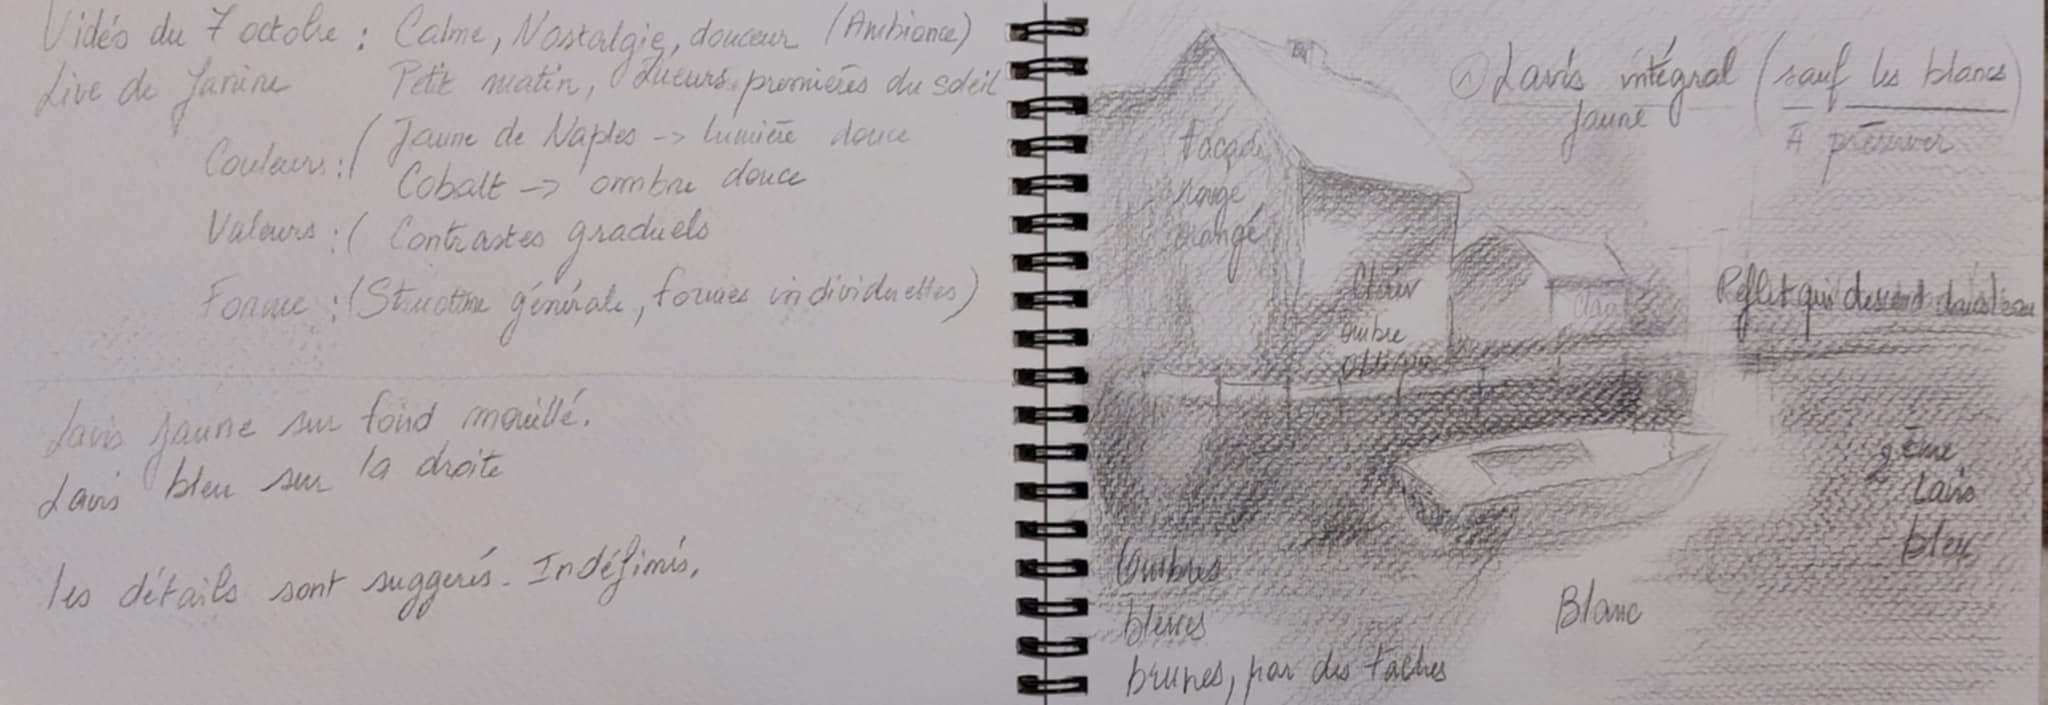 Vidéo du 7 octobre : Calme, Nostalgie, douceur (Ambiance)
Live de Janine Petit matin, Lueurs premières du soleil
Couleurs : ( Jaune de Naples -> lumière douce
Cobalt -> ombre douce
Valeurs : ( Contrastes graduels
Forme : (Structure générale, formes individuelles)
Lavis jaune sur fond mouillé.
Lavis bleu sur la droite
les détails sont suggérés. Indéfinis.
① Lavis intégral (sauf les blancs)
jaune À préserver
façade
rouge
orangé
Clair
ombre
oblique
Clair
Reflet qui descend dans l'eau
2ème
Lavis
bleu
Ombres
bleues
brunes, par des taches
Blanc